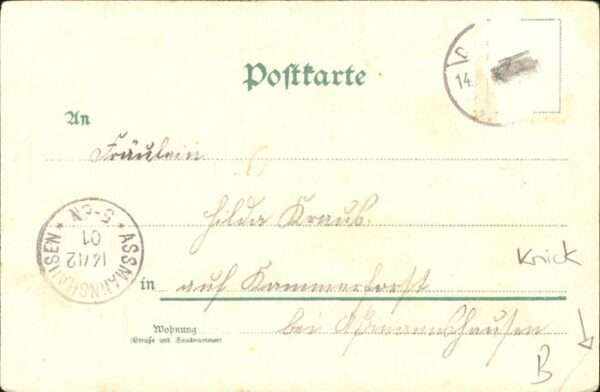 Postkarte
14.
An
Fräulein
Hilda Kraus.
* ASSMANNSHAUSEN *
14/12
01
5-6N
Knick
in auf Kammerforst
Wohnung
bei Aßmannshausen
(Straße und Hausnummer)
B